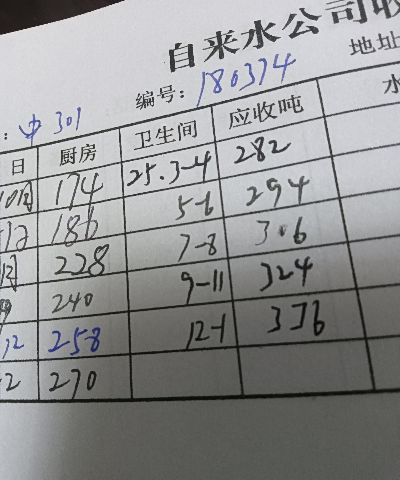 自来水公司收
编号: 180374 地址
: 中 301
日 厨房 卫生间 应收吨 水
10月 174 25.3-4 282
186 5-6 294
月 228 7-8 306
240 9-11 324
12 258 12-1 336
2 270